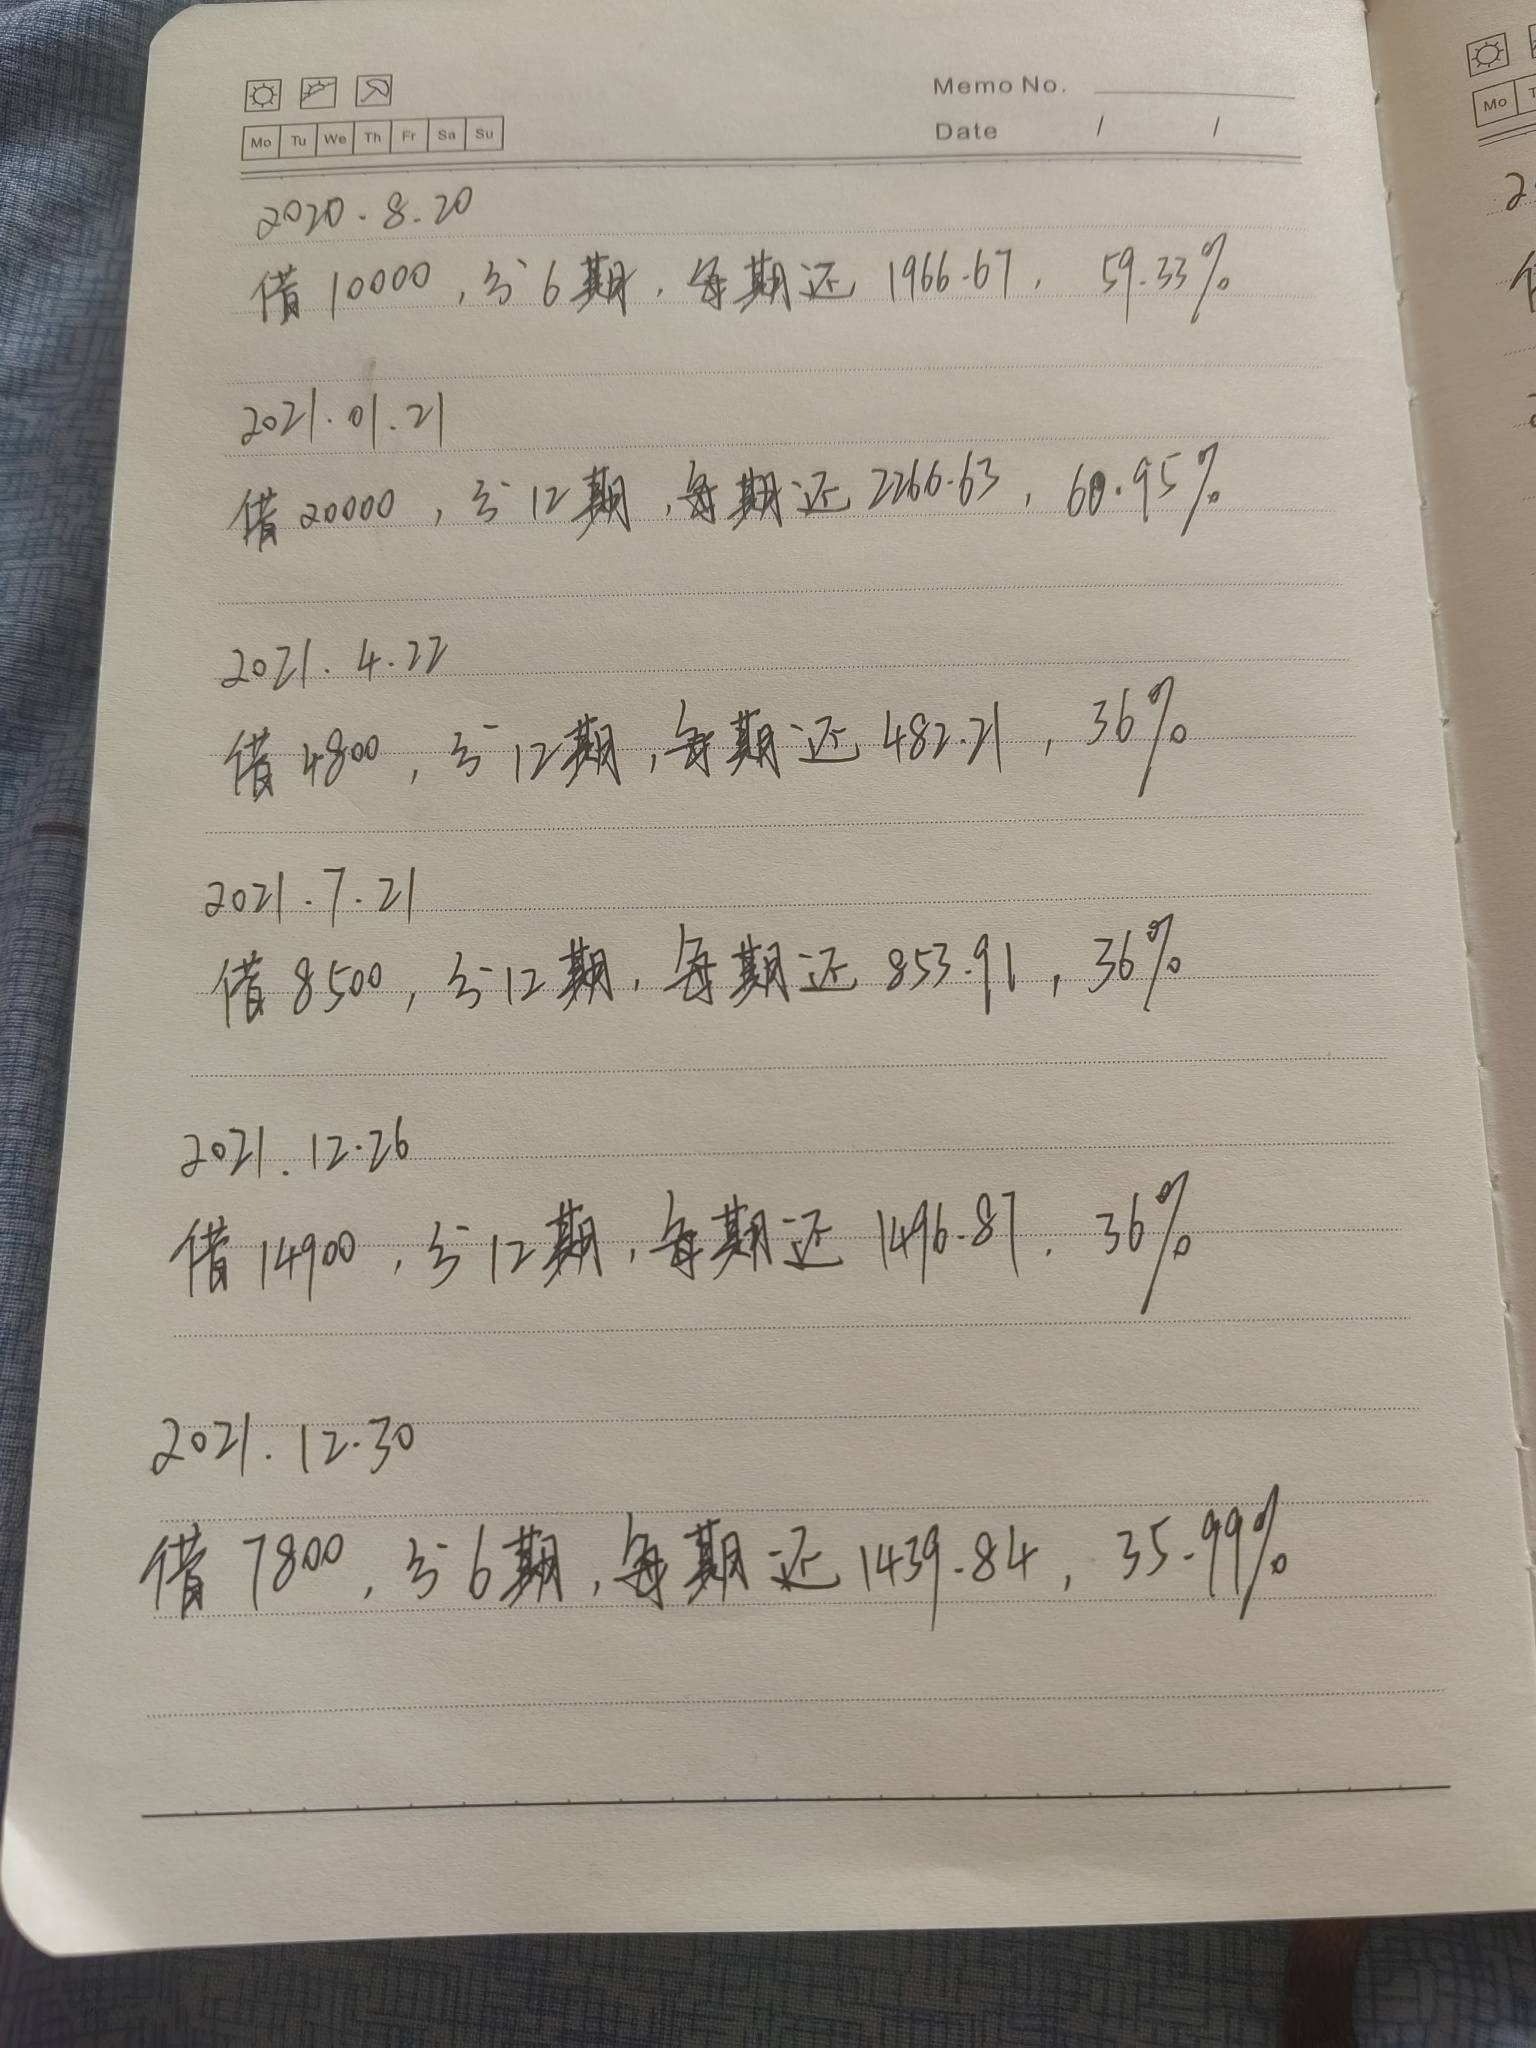 Memo No.
Mo Tu We Th Fr Sa Su
Date / /
2020.8.20
借10000,分6期,每期还1966.67,59.33%
2021.01.21
借20000,分12期,每期还2266.63,60.95%
2021.4.22
借4800,分12期,每期还482.21,36%
2021.7.21
借8500,分12期,每期还853.91,36%
2021.12.26
借14900,分12期,每期还1496.87,36%
2021.12.30
借7800,分6期,每期还1439.84,35.99%
Mo